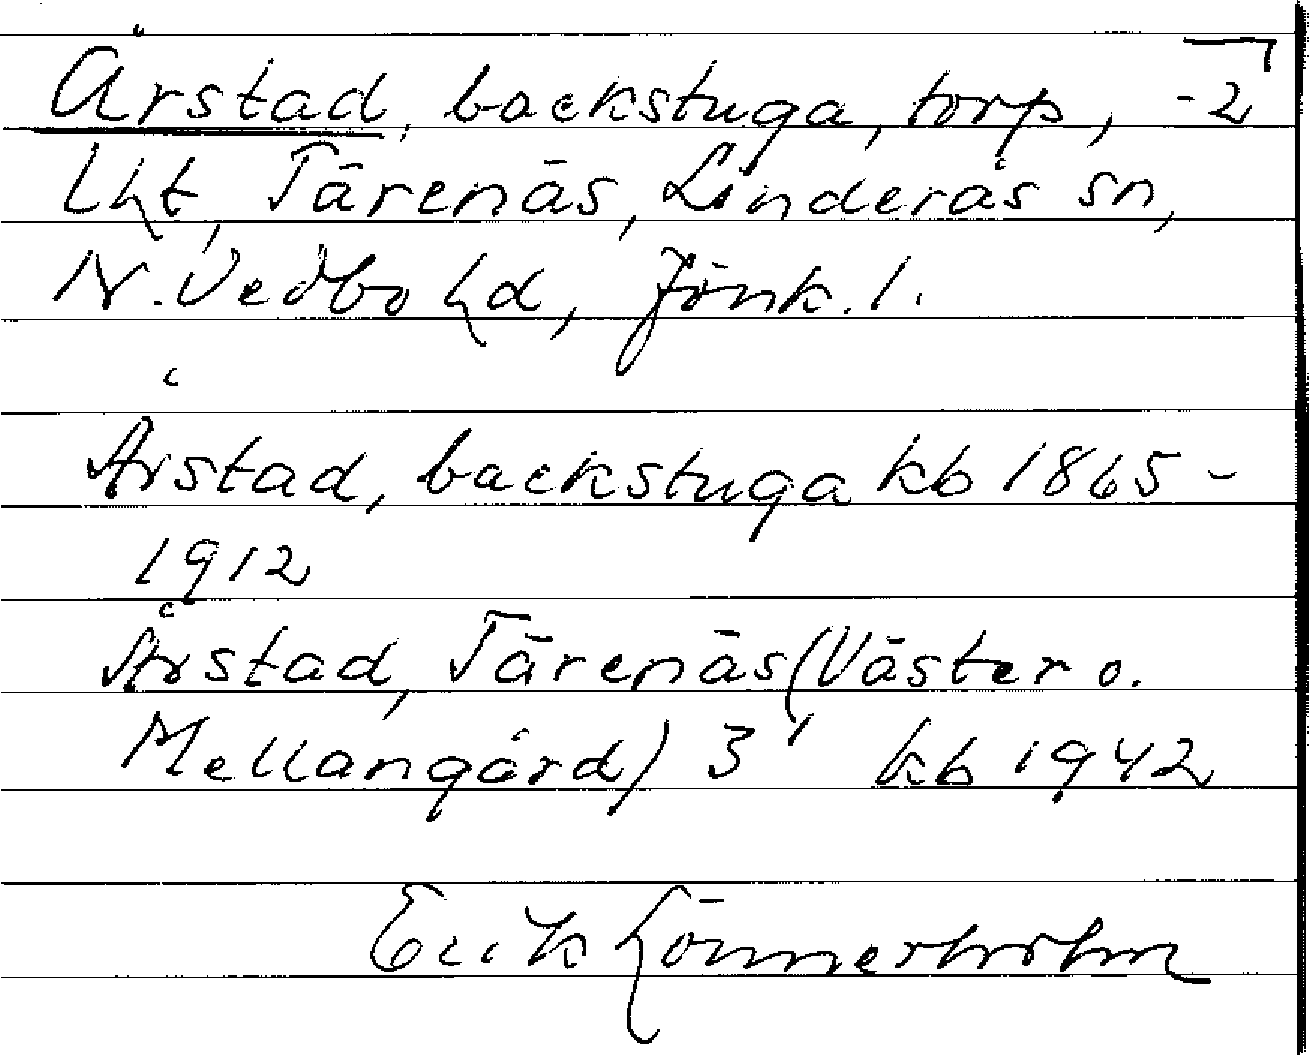 Årstad, backstuga, torp, -2
Lht, Tärenäs, Linderås sn,
N. Vedbo hd, Jönk. l.
Årstad, backstuga kb 1865-
1912
Årstad, Tärenäs (Väster o.
Mellangård) 3¹ kb 1942
Erik Lönnerholm